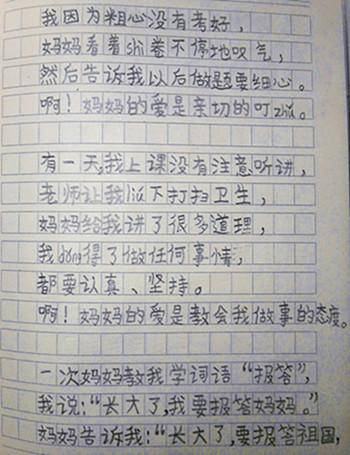 我因为粗心没有考好，
妈妈看着shi卷不停地叹气，
然后告诉我以后做题要细心。
啊！妈妈的爱是亲切的叮zhǔ。
有一天，我上课没有注意听讲，
老师让我liú下打扫卫生，
妈妈给我讲了很多道理，
我dǒng得了做任何事情，
都要认真、坚持。
啊！妈妈的爱是教会我做事的态度。
一次妈妈教我学词语“报答”，
我说：“长大了，我要报答妈妈。”
妈妈告诉我：“长大了，要报答祖国，